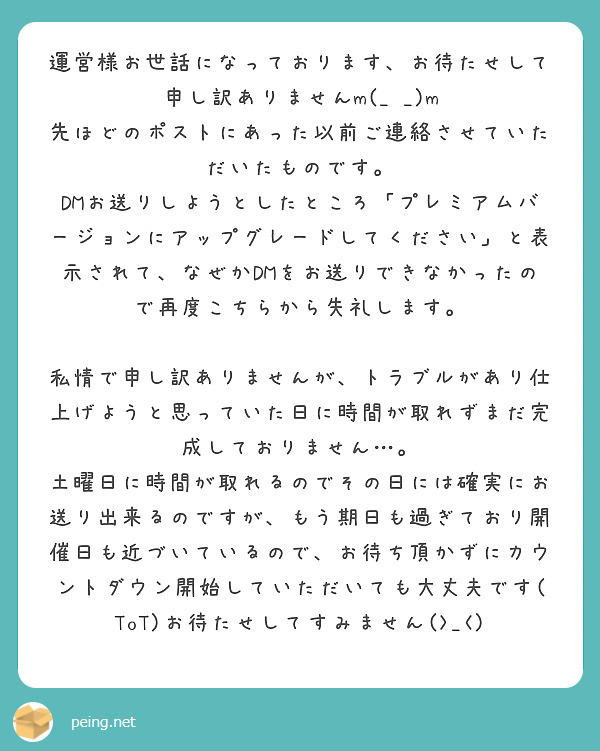 運営様お世話になっております、お待たせして
申し訳ありませんm(_ _)m
先ほどのポストにあった以前ご連絡させていた
だいたものです。
DMお送りしようとしたところ「プレミアムバ
ージョンにアップグレードしてください」と表
示されて、なぜかDMをお送りできなかったの
で再度こちらから失礼します。
私情で申し訳ありませんが、トラブルがあり仕
上げようと思っていた日に時間が取れずまだ完
成しておりません…。
土曜日に時間が取れるのでその日には確実にお
送り出来るのですが、もう期日も過ぎており開
催日も近づいているので、お待ち頂かずにカウ
ントダウン開始していただいても大丈夫です(
ToT)お待たせしてすみません(>_<)
peing.net